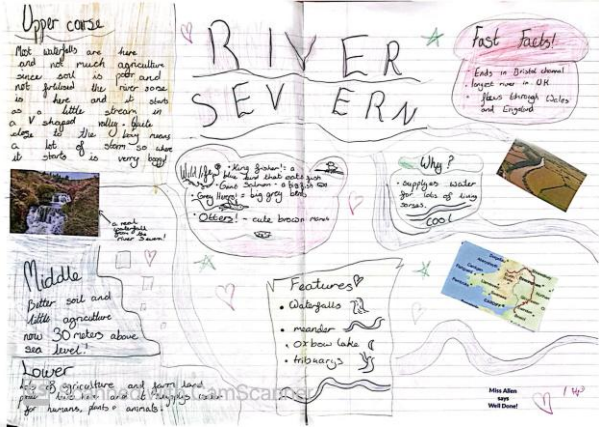 Upper corse
Most waterfalls are here
and not much agriculture
since soil is poor and
not fertilised the river sorse
is here and it starts
as a little stream in
a V shaped valley. Quite
close to the
a lot of storm so where
it starts is verry
a real
waterfall
from the
river severn!
Middle
Better soil and
little agriculture
now 30 meters above
sea level!
Lower
of agriculture and farm land
for humans, plants + animals.
RIVER
SEVERN
Wildlife
King fisher!: a
blue bird that eats fish
Salmon - a big fish
Grey Heron! - big grey birds
Otters! - cute brown
Why?
supplys water
for lots of living
COOL
Features
Waterfalls
meander
Oxbow lake
tribuarys
Fast Facts!
Ends in Bristol channel
longest river in UK
flows through Wales
and England
Miss Allen
says
Well Done!